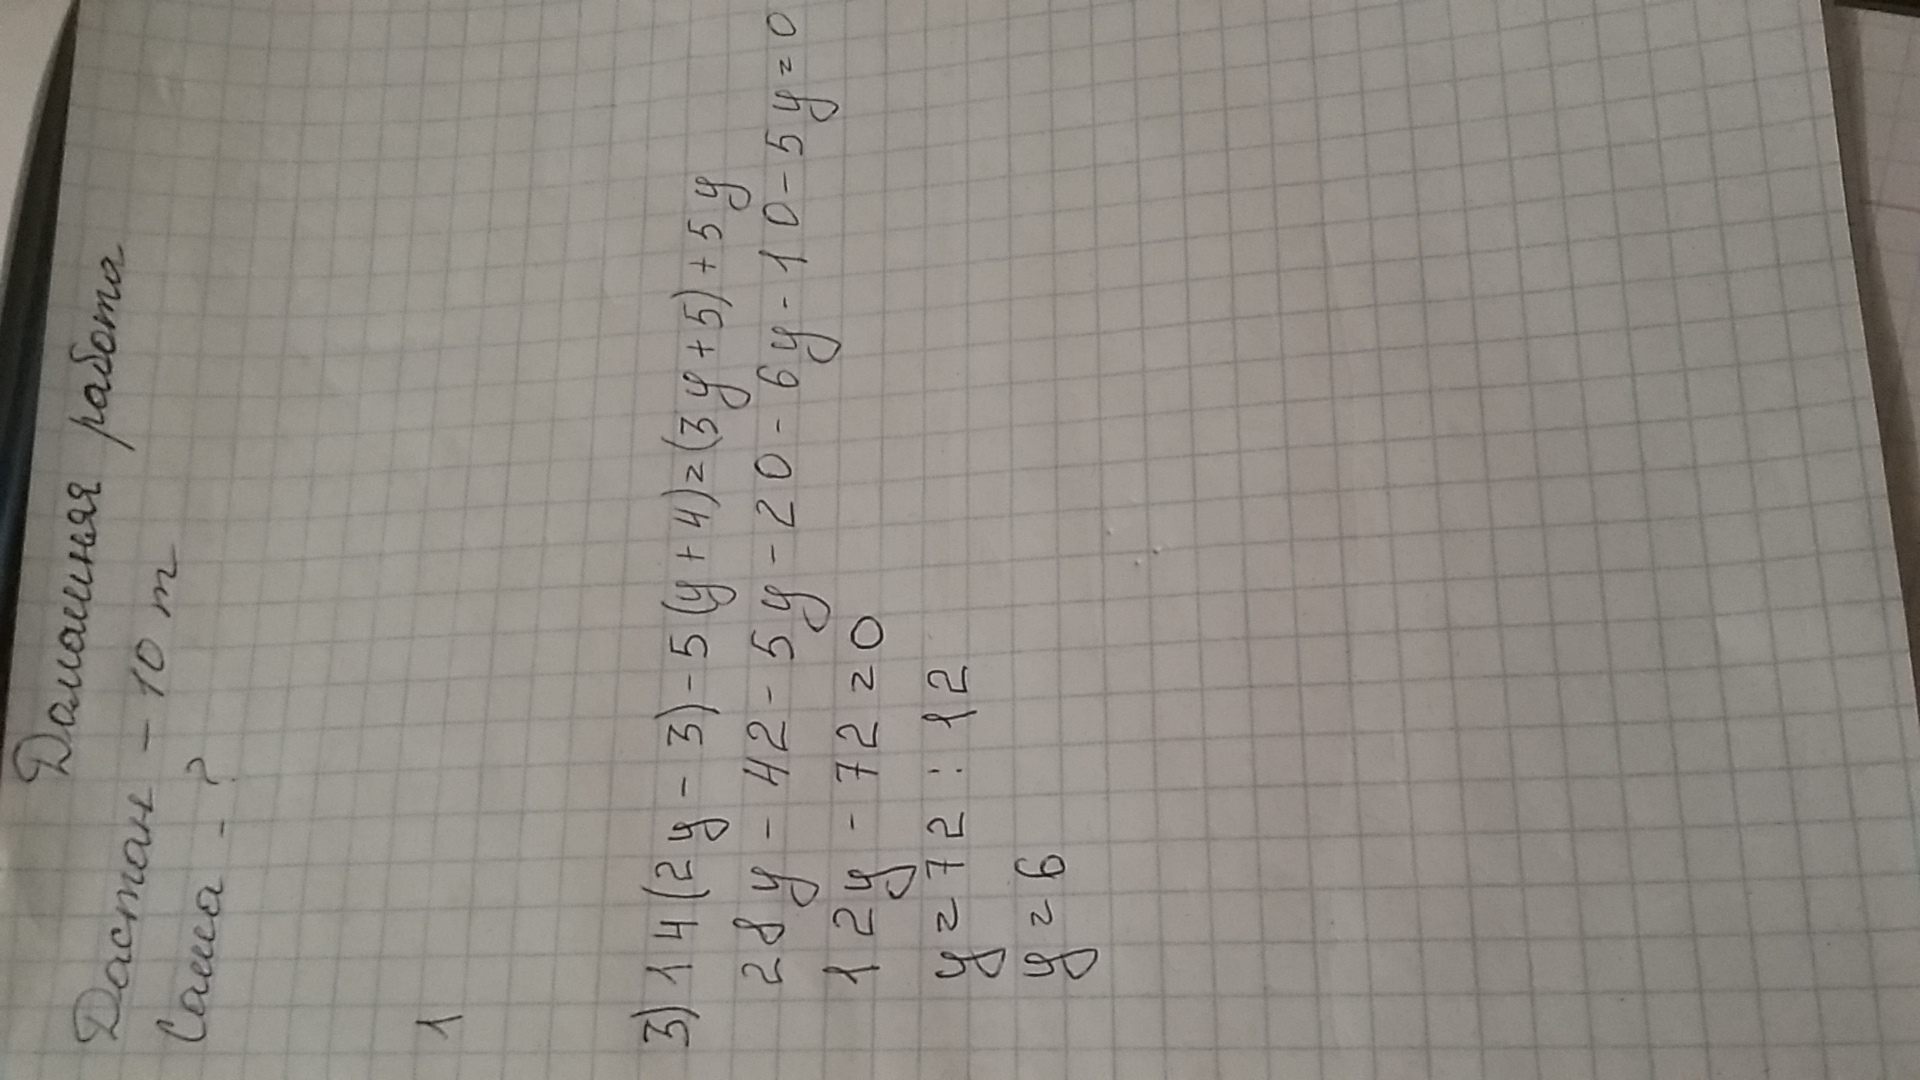 Домашняя работа
Дастан - 10 т
Саша - ?
1
3) 14(2y - 3) - 5(y + 4) = (3y + 5) + 5y
28y - 42 - 5y - 20 - 6y - 10 - 5y = 0
12y - 72 = 0
y = 72 : 12
y = 6